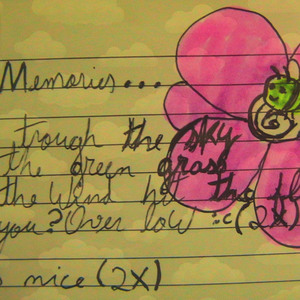 Memories...
trough the sky
the green grass
the wind hit the fl
you? Over low :c (2x)
nice (2X)